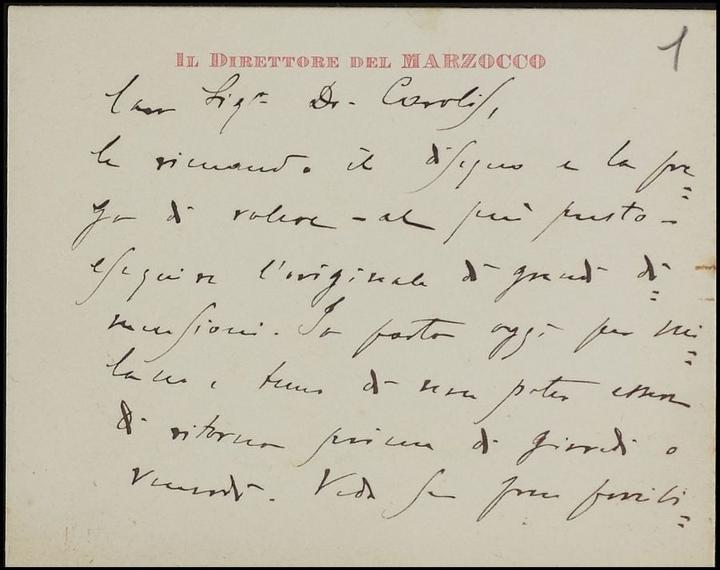 IL DIRETTORE DEL MARZOCCO
1
Caro Sigr De Carolis,
le rimando il disegno e la pre=
go di volere - al più presto -
eseguire l'originale di grandi di=
mensioni. Io parto oggi per Mi=
lano e temo di non poter essere
di ritorno prima di giovedì o
Venerdì. Veda se fosse possibi=